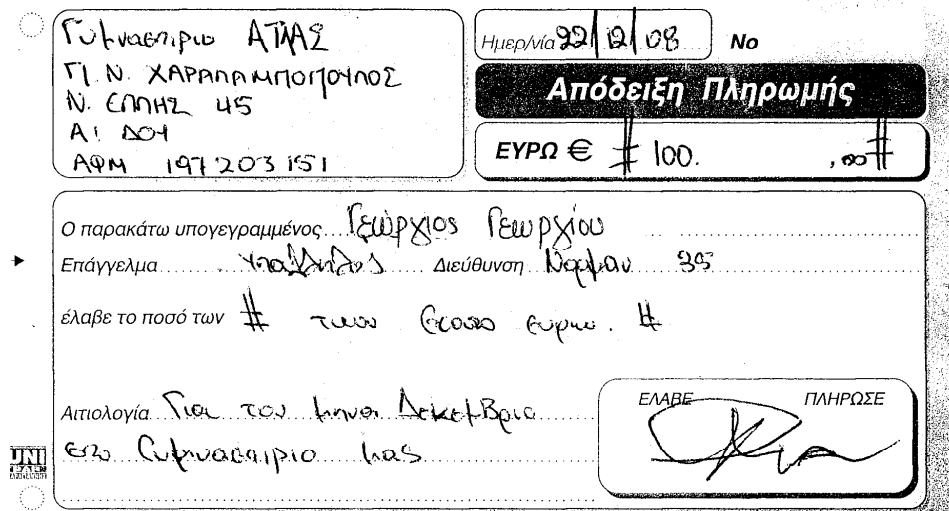 Γυμναστηριο ΑΤΛΑΣ
Π. Ν. ΧΑΡΑΛΑΜΠΟΠΟΥΛΟΣ
Ν. ΕΛΛΗΣ 45
Α! ΔΟΥ
ΑΦΜ 197203151
Ημερ/νία 22/12/08 No
Απόδειξη Πληρωμής
ΕΥΡΩ € # 100. ,00 #
Ο παρακάτω υπογεγραμμένος Γεώργιος Γεωργίου
Επάγγελμα υπάλληλος Διεύθυνση Νορμαν 35
έλαβε το ποσό των # των εκατο ευρω. #
Αιτιολογία Για τον μηνα Δεκεμβριο
στο Γυμναστηριο μας
ΕΛΑΒΕ ΠΛΗΡΩΣΕ
UNI PAP